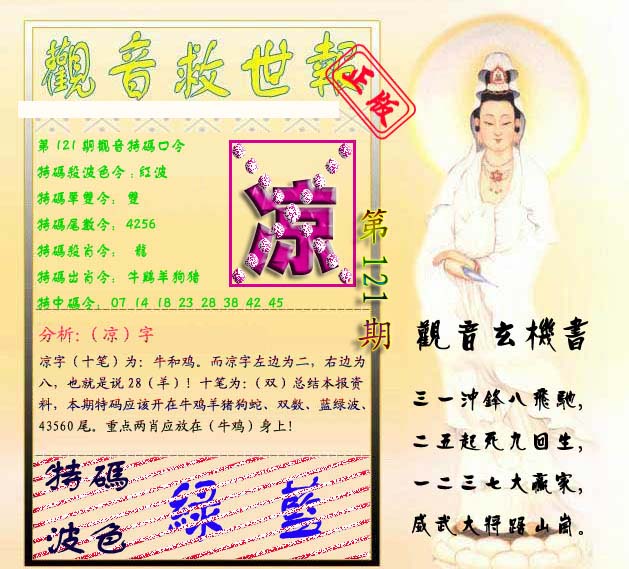 觀音救世報
正版
第121期觀音特碼口令
特碼殺波色令:紅波
特碼單雙令: 雙
特碼尾數令: 4256
特碼殺肖令: 龍
特碼出肖令: 牛鷄羊狗猪
特中碼令: 07 14 18 23 28 38 42 45
凉
第121期
分析:(凉)字
凉字(十笔)为:牛和鸡。而凉字左边为二,右边为
八,也就是说28(羊)!十笔为:(双)总结本报资
料,本期特码应该开在牛鸡羊猪狗蛇、双数、蓝绿波、
43560尾。重点两肖应放在(牛鸡)身上!
特碼
波色
綠 藍
觀音玄機書
三一沖鋒八飛馳,
二五起死九回生,
一二三七大贏家,
威武大將踞山崗。